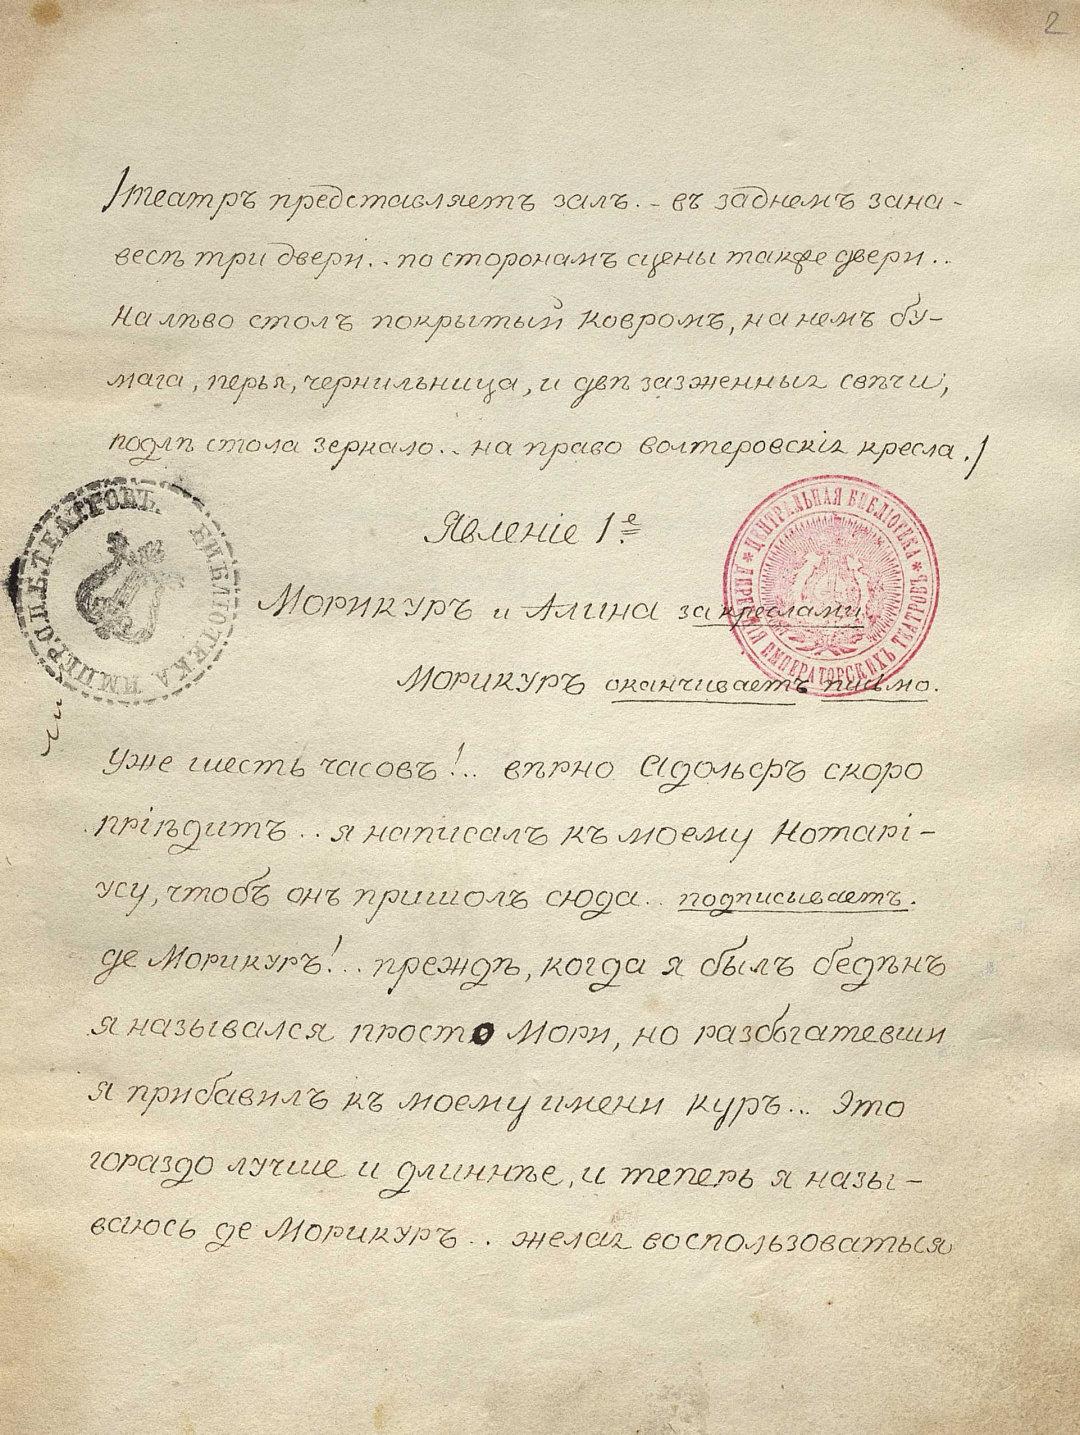 2
/театръ представляетъ залъ. - въ заднемъ зана-
весѣ три двери.. по сторонамъ сцены также двери..
на лѣво столъ покрытый ковромъ, на немъ бу-
мага, перья, чернильница, и двѣ зазженныя свѣчи,
подлѣ стола зеркало.. на право волтеровскія кресла./
Явленіе 1е.
Морикуръ и Алина за креслами.
Морикуръ оканчиваетъ письмо.
Уже шесть часовъ!.. вѣрно Адольфъ скоро
пріѣдитъ.. я написалъ къ моему Нотарі-
усу, чтобъ онъ пришолъ сюда.. подписываетъ.
де Морикуръ!.. преждѣ, когда я былъ бедѣнъ
я назывался просто Мори, но разбогатевши
я прибавилъ къ моему имени куръ... Это
гораздо лучше и длиннѣе, и теперь я назы-
ваюсь де Морикуръ.. желая воспользоваться
БИБЛІОТЕКА ИМПЕР. С.П.Б. ТЕАТРОВЪ.
ЦЕНТРАЛЬНАЯ БИБЛІОТЕКА * ДИРЕКЦІЯ ИМПЕРАТОРСКИХЪ ТЕАТРОВЪ *